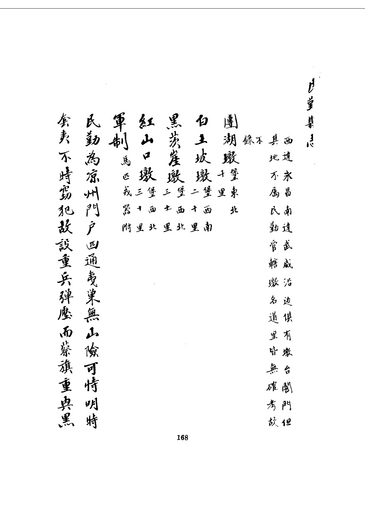 民勤縣志
西達永昌南達武威沿邊俱有墩台闇門但
其地不属民勤官轄墩名道里皆無確考故
不
錄
團湖墩堡東北
十里
白土坡墩堡西南
二十里
黑茨崖墩堡西北
三十里
紅山口墩堡西北
三十里
軍制馬匹戎器附
民勤為凉州門户四通夷巢無山險可恃明時
套夷不時窃犯故設重兵弹壓而蔡旗重興黑
168